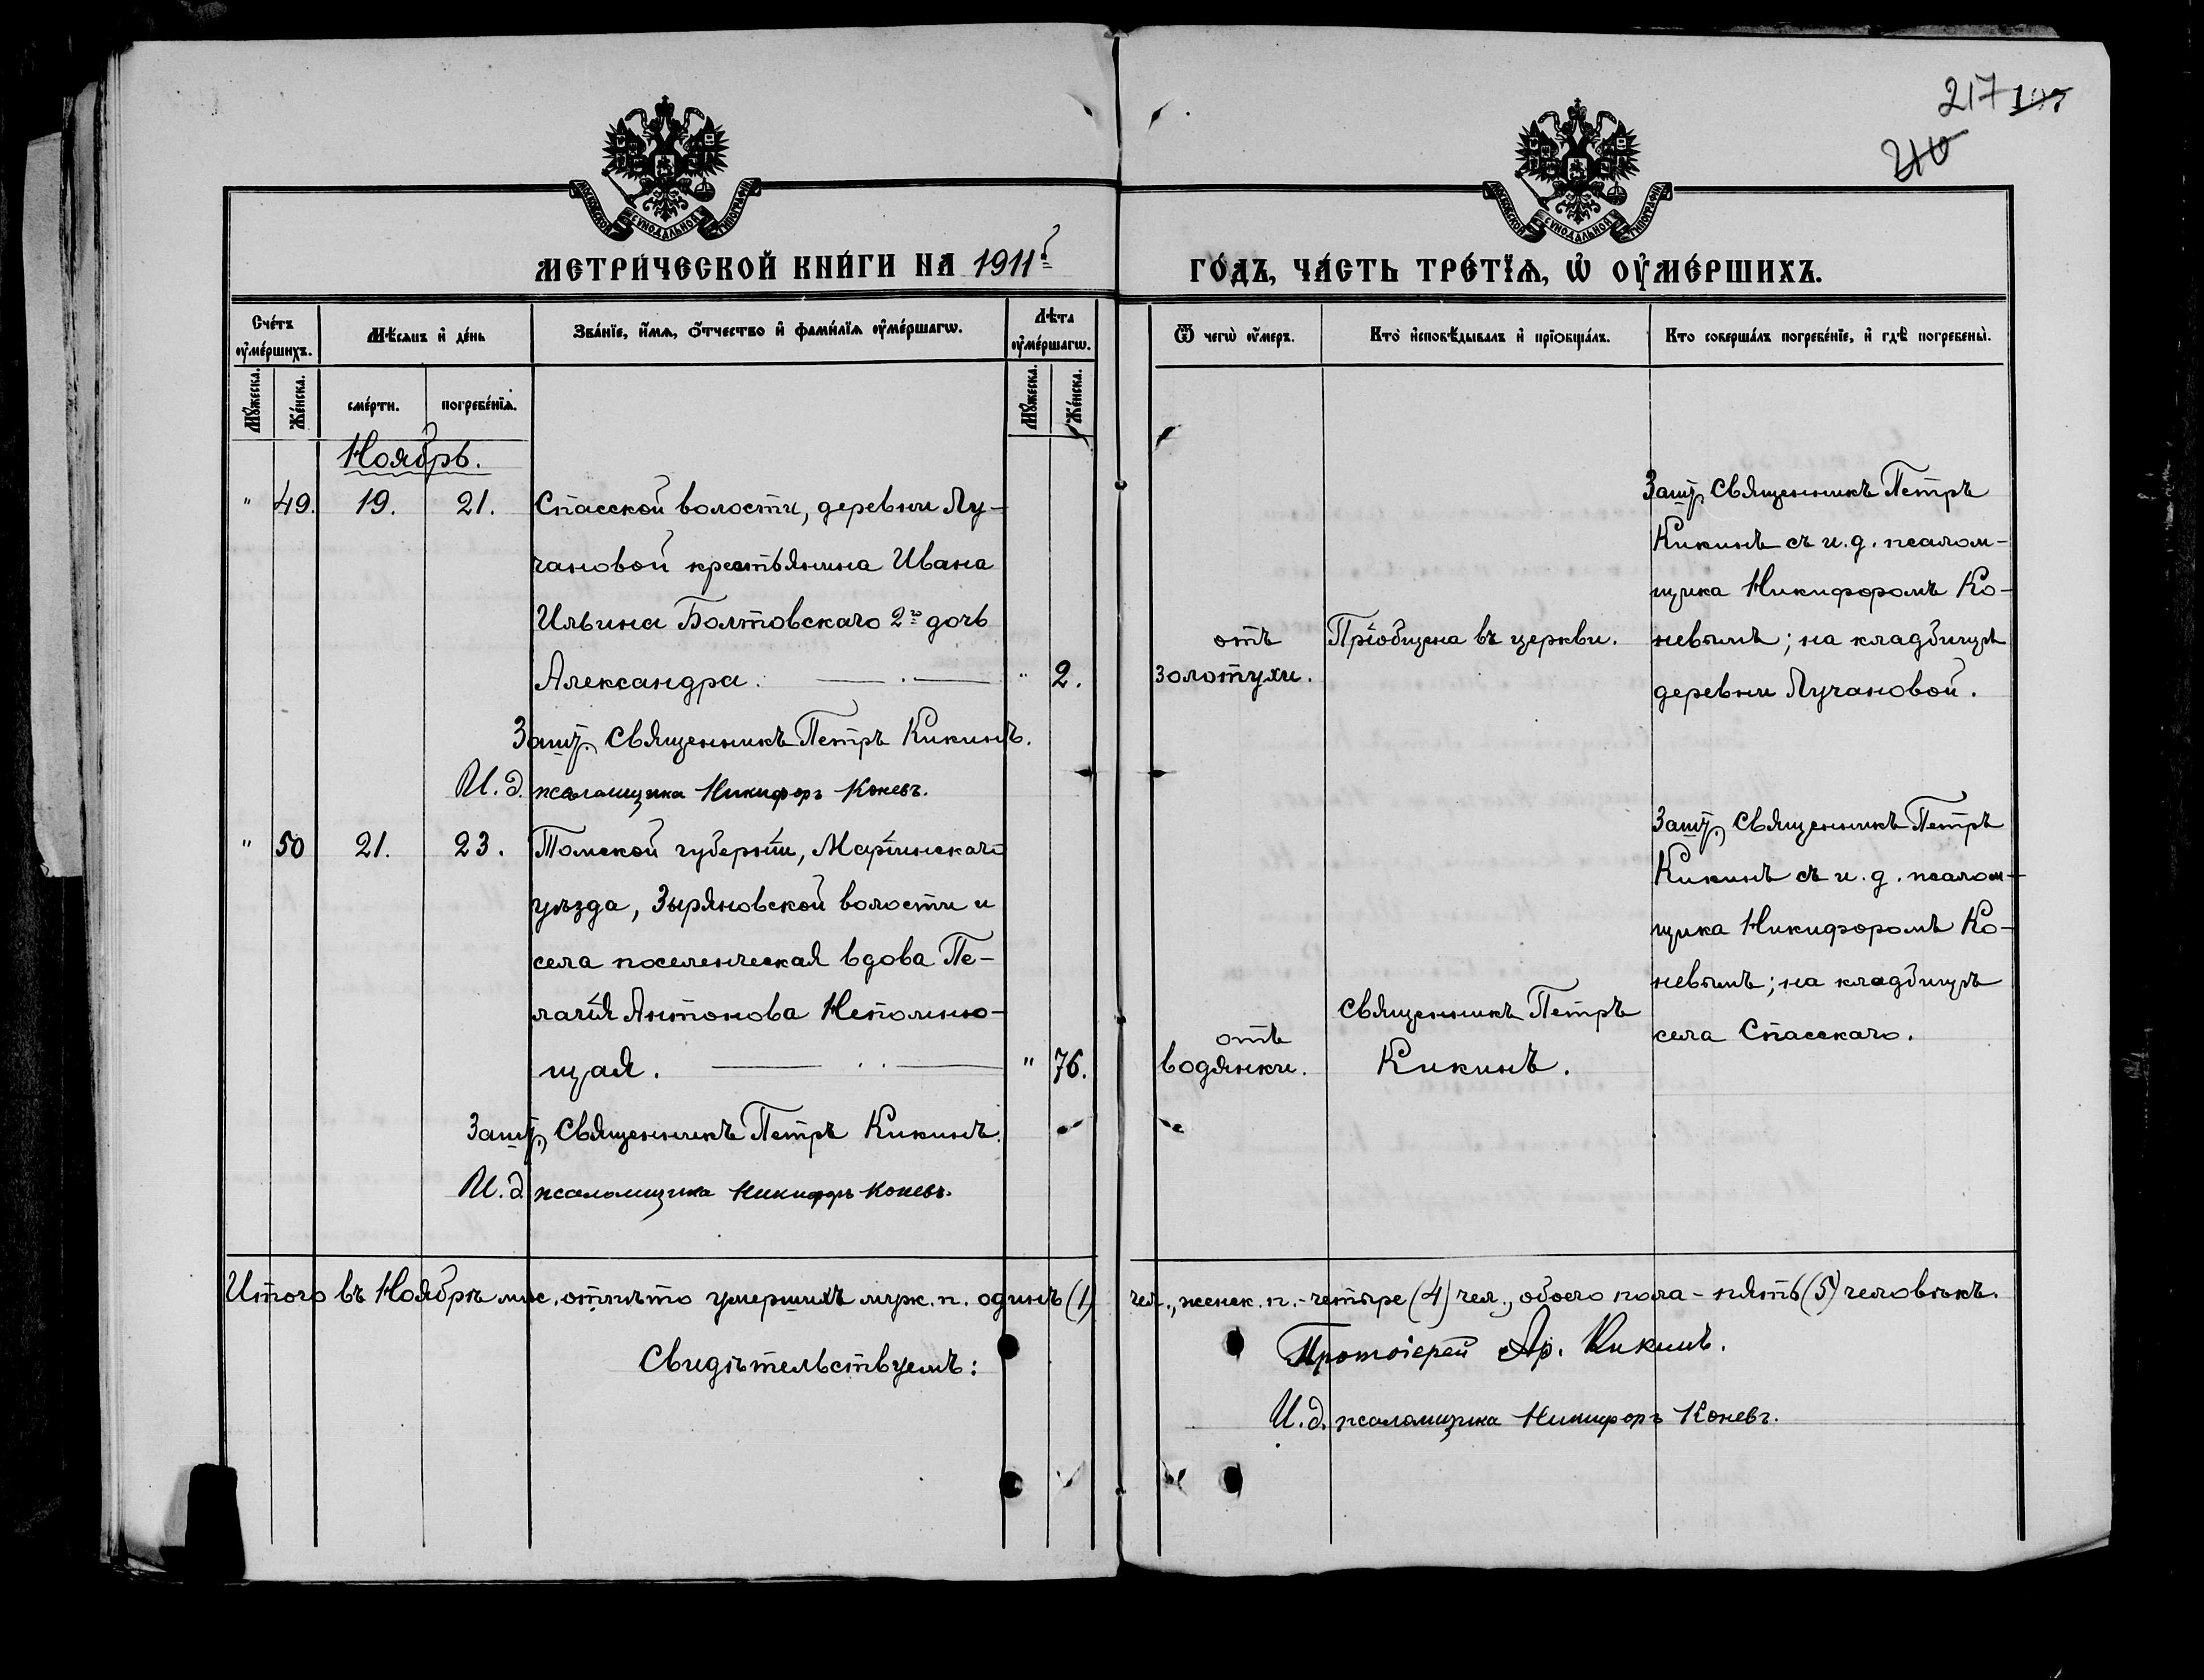 217 107
210
МОСКОВСКОЙ СѴНОДАЛЬНОЙ ТИПОГРАФІИ
МОСКОВСКОЙ СѴНОДАЛЬНОЙ ТИПОГРАФІИ
МЕТРИ́ЧЕСКОЙ КНИ́ГИ НА 1911 г.
ГО́ДЪ, ЧА́СТЬ ТРЕ́ТЇѦ, Ѡ҆ ОУ҆МЕ́РШИХЪ.
Сче́тъ оу҆ме́ршихъ.
Мѣ́сѧцъ и҆ де́нь
Зва́нїе, и҆́мѧ, ѻ҆́тчество и҆ фами́лїѧ оу҆ме́ршагѡ.
Лѣ́та оу҆ме́ршагѡ.
Ѿ чегѡ̀ оу҆́меръ.
Кто̀ и҆сповѣ́дывалъ и҆ прїобща́лъ.
Кто̀ соверша́лъ погребе́нїе, и҆ гдѣ̀ погребены̀.
Мꙋ́жеска.
Же́нска.
сме́рти.
погребе́нїѧ.
Мꙋ́жеска.
Же́нска.
Ноябрь.
" 49. 19. 21. Спасской волости, деревни Лу-
чановой крестьянина Ивана
Ильина Болтовскаго 2го дочь
Александра. " 2.
отъ
золотухи.
Пріобщена въ церкви.
Зашт. Священникъ Петръ
Кикинъ съ и. д. псалом-
щика Никифоромъ Ко-
невымъ; на кладбищѣ
деревни Лучановой.
Зашт. Священникъ Петръ Кикинъ.
И. д. псаломщика Никифоръ Коневъ.
" 50 21. 23. Томской губерніи, Маріинскаго
уѣзда, Зыряновской волости и
села поселенческая вдова Пе-
лагія Антонова Непомню-
щая. " 76.
отъ
водянки.
Священникъ Петръ
Кикинъ.
Зашт. Священникъ Петръ
Кикинъ съ и. д. псалом-
щика Никифоромъ Ко-
невымъ; на кладбищѣ
села Спасскаго.
Зашт. Священникъ Петръ Кикинъ.
И. д. псаломщика Никифоръ Коневъ.
Итого въ Ноябрѣ мѣс. отпѣто умершихъ муж. п. одинъ (1) чел., женск. п. - четыре (4) чел., обоего пола - пять (5) человѣкъ.
Свидѣтельствуемъ:
Протоіерей Ар. Кикинъ.
И. д. псаломщика Никифоръ Коневъ.